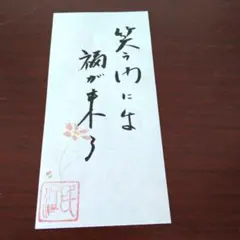 笑う門には
福が来る